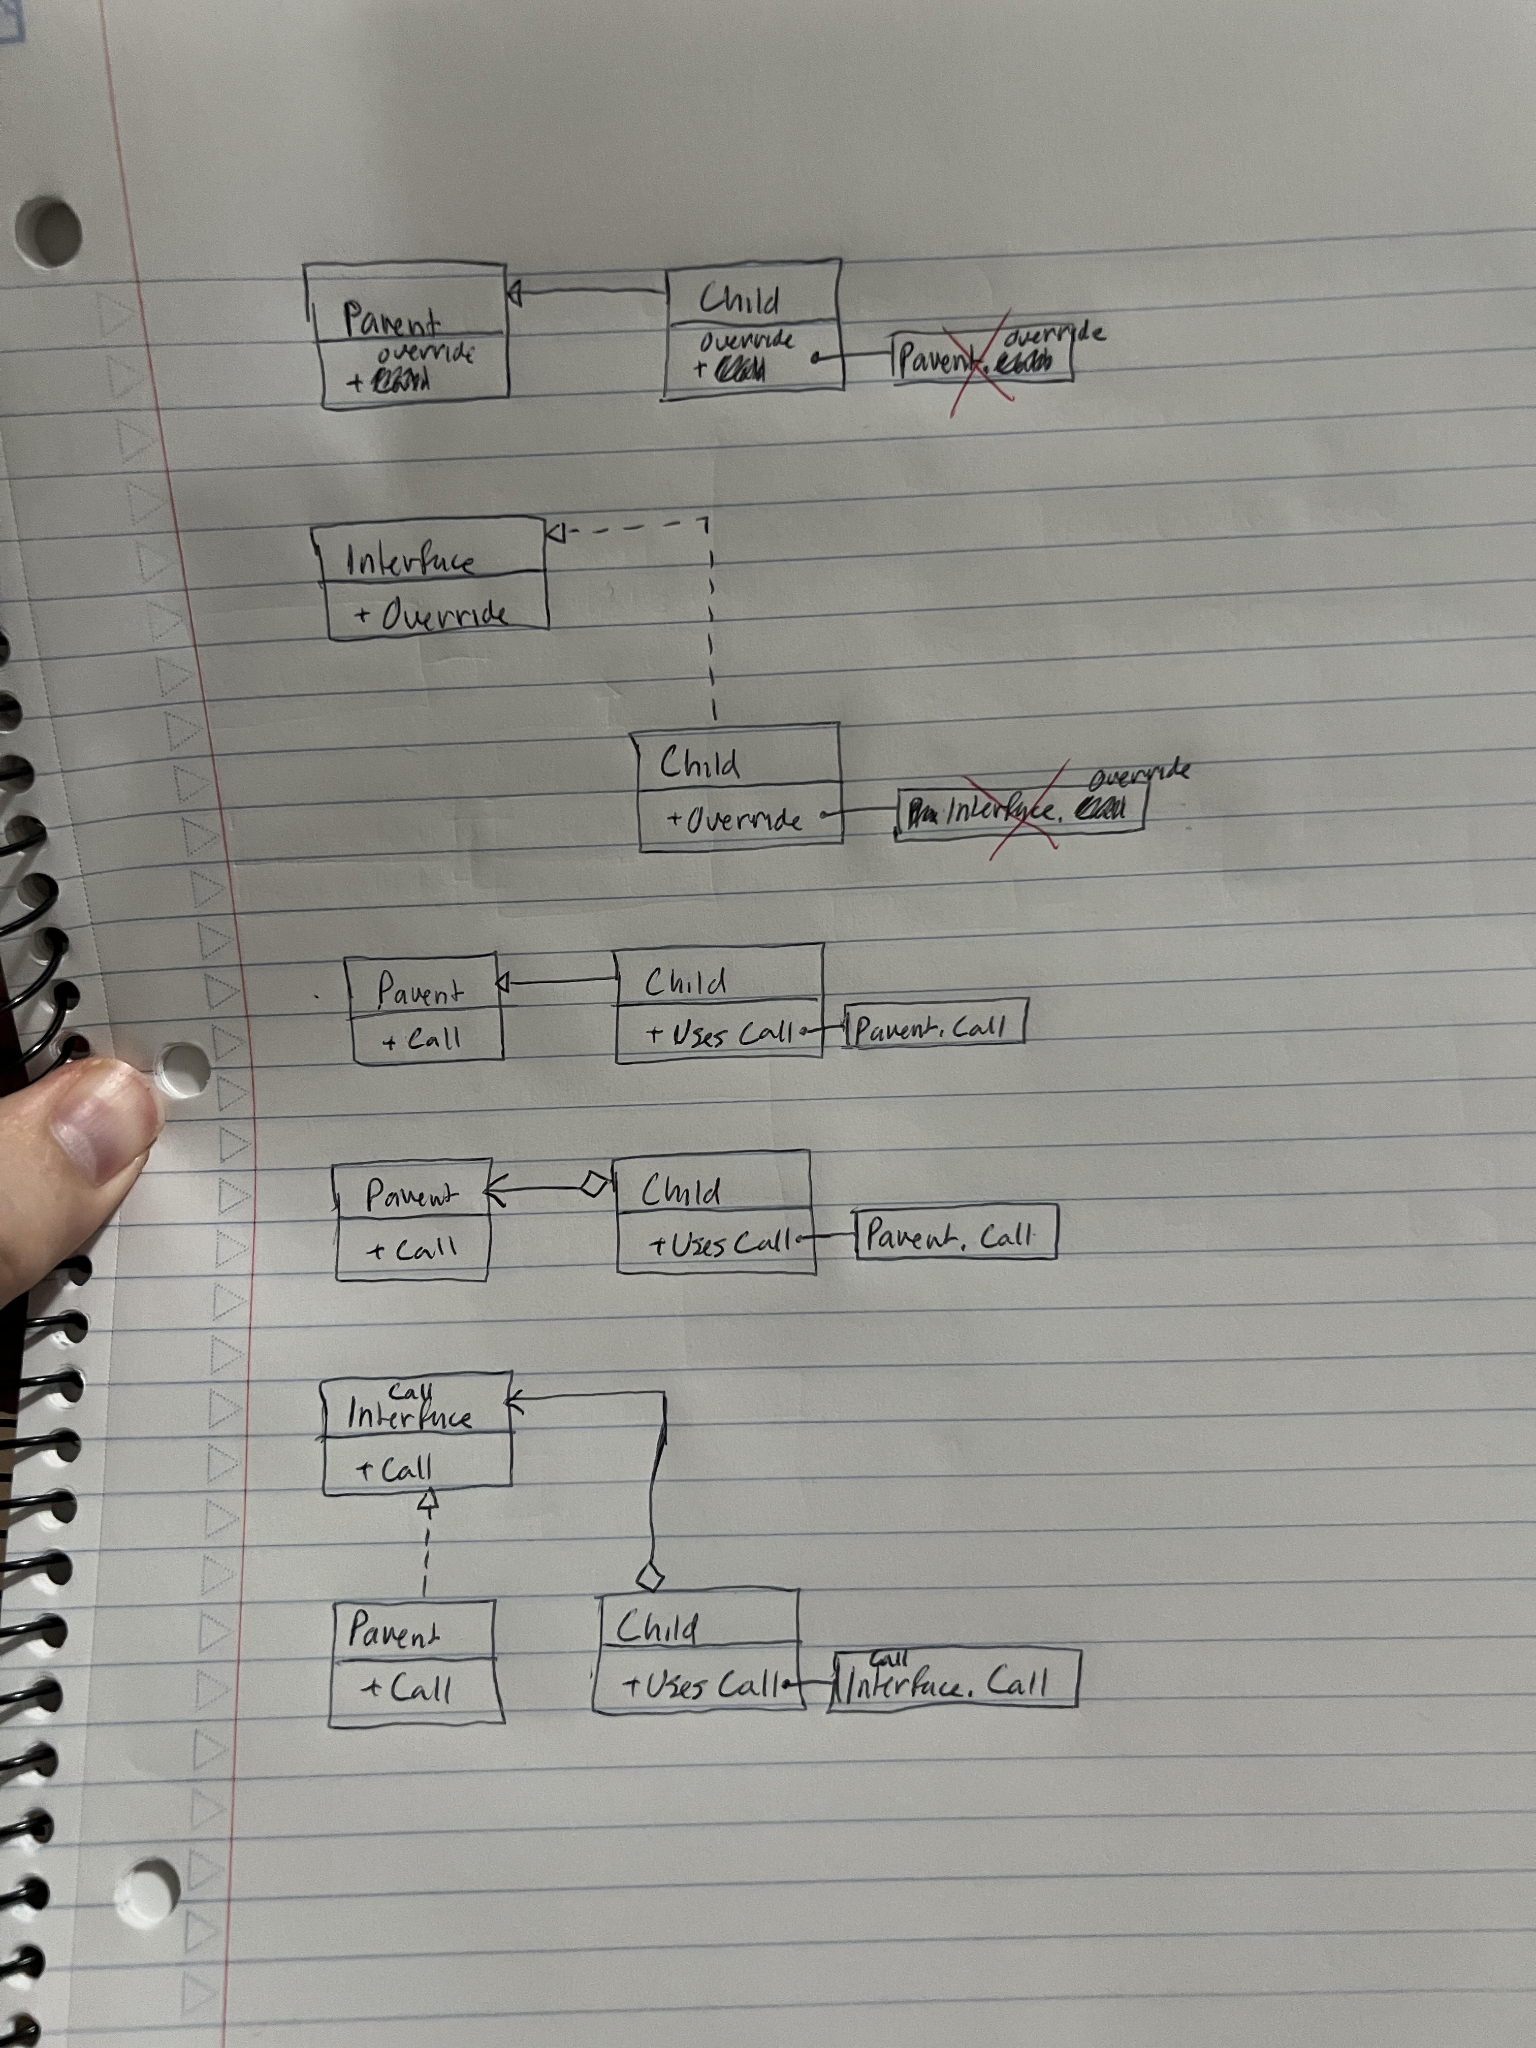 Parent
override
+
Child
override
+
Parent. override
Interface
+ Override
Child
+ Override
Interface. override
Parent
+ Call
Child
+ Uses Call
Parent. Call
Parent
+ Call
Child
+ Uses Call
Parent. Call
Call
Interface
+ Call
Parent
+ Call
Child
+ Uses Call
Call
Interface. Call